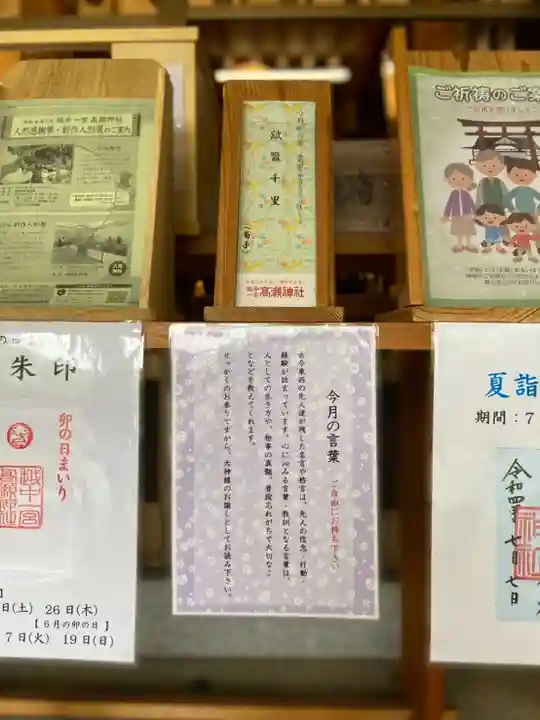 越中一宮 高瀬神社
人形感謝祭・創作人形展のご案内
跛鼈千里
(荀子)
越中一宮 高瀬神社
ご祈祷のご案
今月の言葉 ご自由にお持ち下さい
古今東西の先人達が残した名言や格言は、先人の信念・行動・
経験が詰まっています。心に沁みる言葉・教訓となる言葉は、
人としての生き方や、物事の真髄、普段忘れがちで大切なこ
となどを教えてくれます。
せっかくのお参りですから、大神様のお諭しとしてお読み下さい。
朱印
卯の日まいり
越中一宮
高瀬神社
日(土) 26日(木)
【6月の卯の日】
7日(火) 19日(日)
夏詣
期間:7
令和四年
七月七日